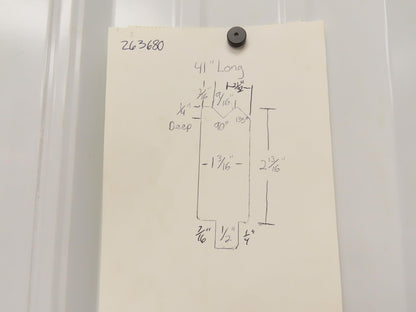 263680
41" Long
9/16"
1/4"
Deep
90°
135°
1 3/16"
2 13/16"
1/2"
1/4"